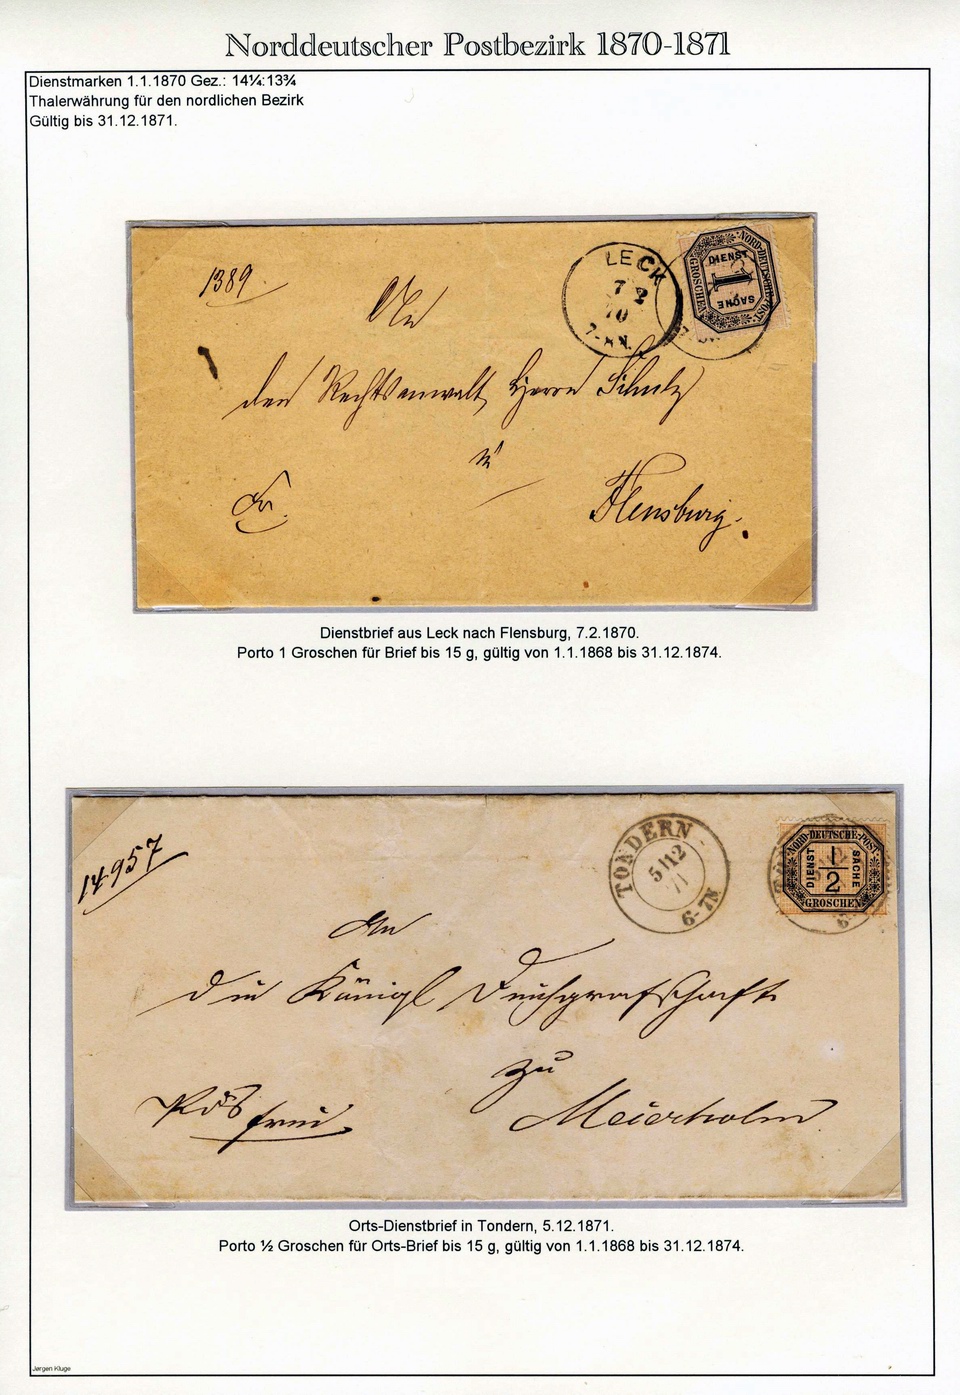 Norddeutscher Postbezirk 1870-1871
Dienstmarken 1.1.1870 Gez.: 14¼:13¾
Thalerwährung für den nordlichen Bezirk
Gültig bis 31.12.1871.
1389
LECK
7 2
70
7-8 N.
NORD-DEUTSCHE-POST
DIENST
1
SACHE
GROSCHEN
An
den Rechtsanwalt Herrn Schulz
in
Fr.
Flensburg.
Dienstbrief aus Leck nach Flensburg, 7.2.1870.
Porto 1 Groschen für Brief bis 15 g, gültig von 1.1.1868 bis 31.12.1874.
14957
TONDERN
5 12
71
6-7N
NORD-DEUTSCHE-POST
DIENST
1/2
SACHE
GROSCHEN
An
die Königl Deichgrafschaft
zu
Meierholm
frei
Orts-Dienstbrief in Tondern, 5.12.1871.
Porto ½ Groschen für Orts-Brief bis 15 g, gültig von 1.1.1868 bis 31.12.1874.
Jørgen Kluge